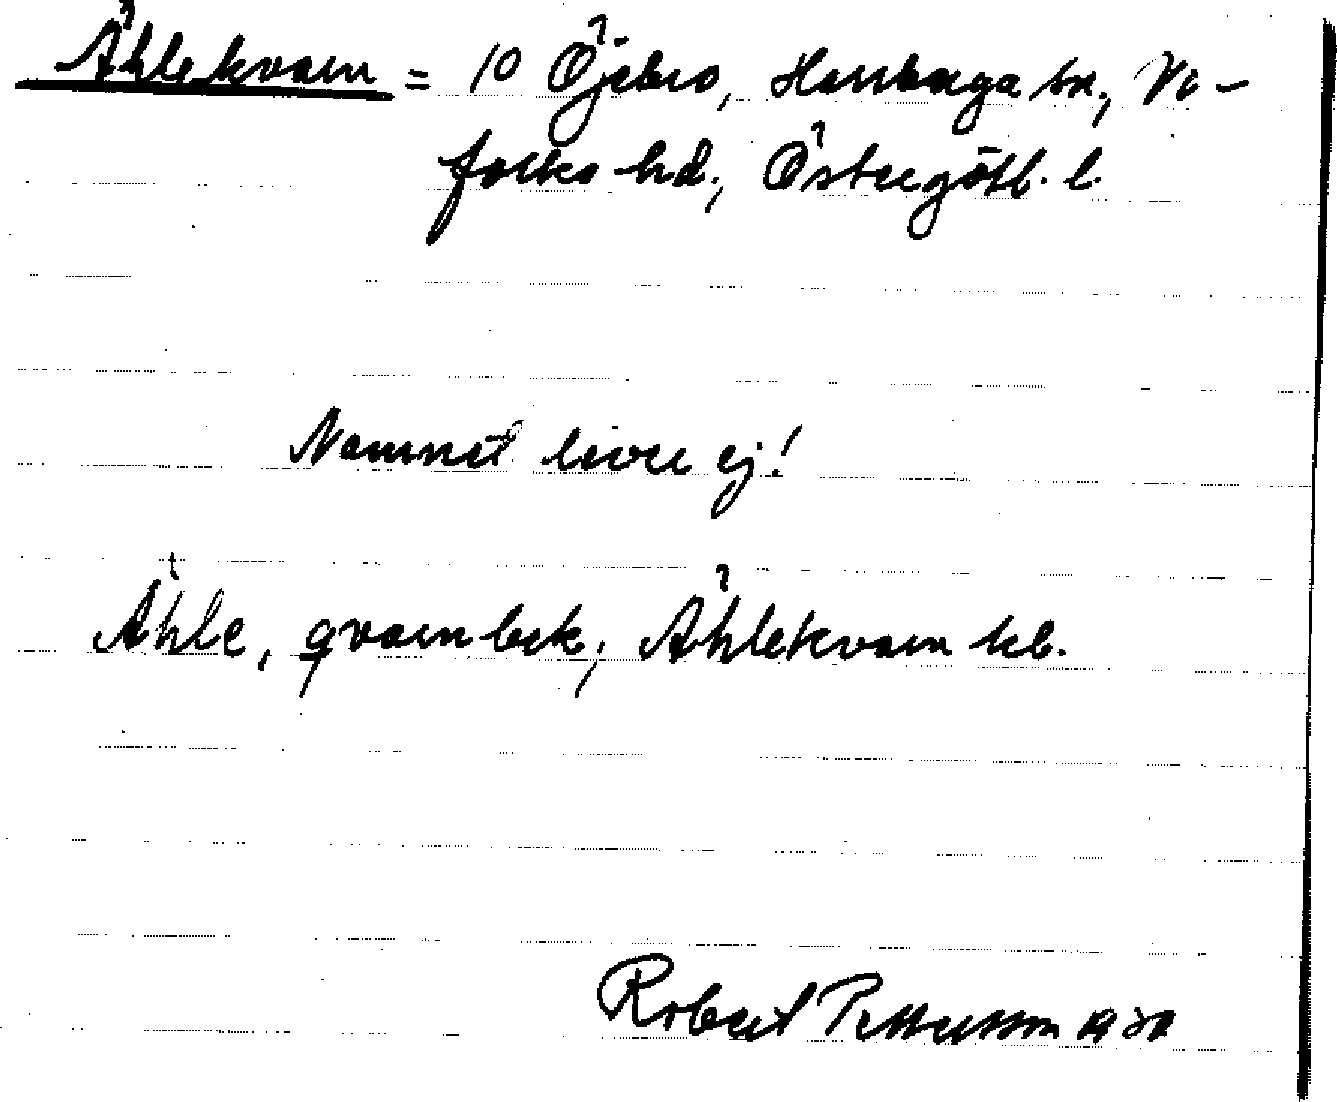 Åhlekvarn = 10 Öjebro, Herrberga sn., Vi-
folka hd., Östergötl. l.
Namnet lever ej!
Åhle, qvarn bek, Åhlekvarn kb.
Robert Pettersson